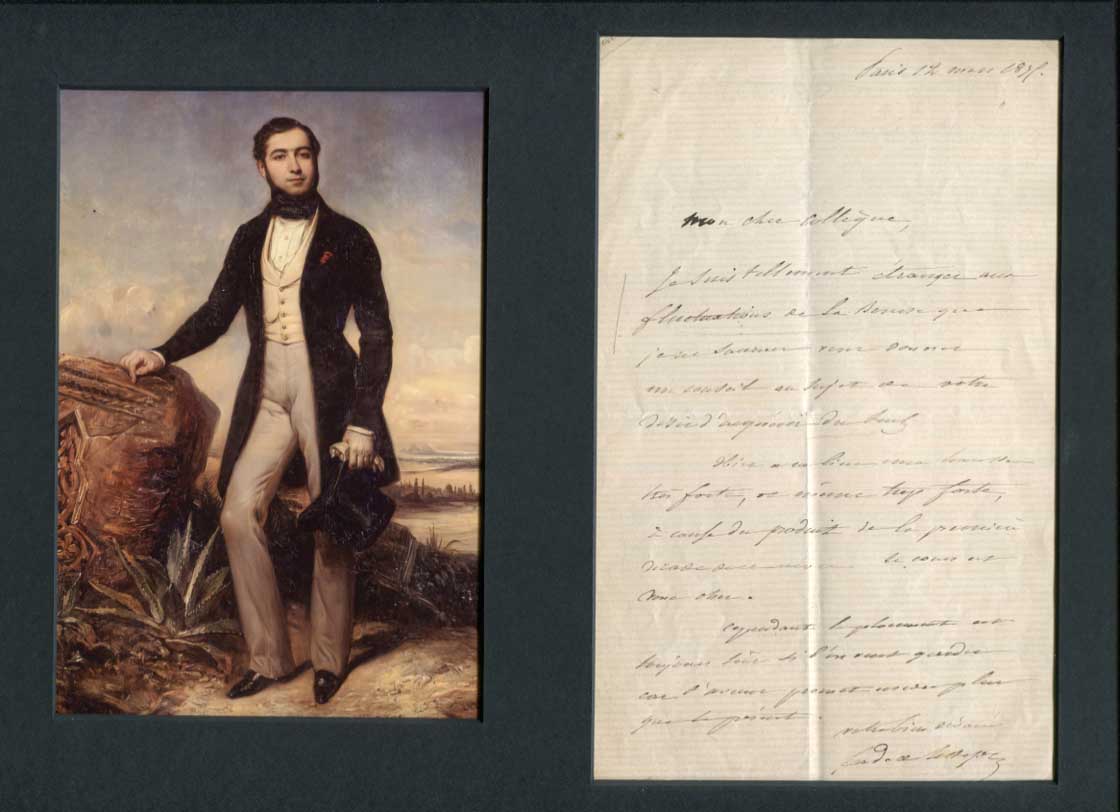 Paris 12 mars 187
mon cher Collègue,
Je suis tellement étranger aux
fluctuations de la Bourse que
je ne saurais vous donner
un conseil au sujet de votre
désir d'acquérir du Suez
Hier a eu lieu une hausse
très forte, et même trop forte,
à cause du produit de la première
décade de mars le cours est
donc cher.
cependant le placement est
toujours sûr si l'on veut garder
car l'avenir promet encore plus
que le présent.
votre bien dévoué